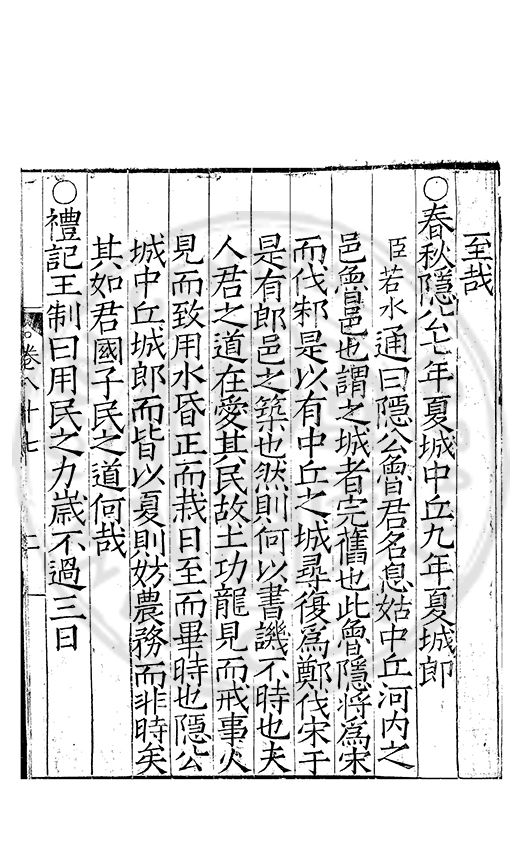 至哉
○春秋隱公七年夏城中丘九年夏城郎
臣若水通曰隱公魯君名息姑中丘河内之
邑魯邑也謂之城者完舊也此魯隱將為宋
而伐邾是以有中丘之城尋復為鄭伐宋于
是有郎邑之築也然則何以書譏不時也夫
人君之道在愛其民故土功龍見而戒事火
見而致用水昏正而栽日至而畢時也隱公
城中丘城郎而皆以夏則妨農務而非時矣
其如君國子民之道何哉
○禮記王制曰用民之力歲不過三日
卷八十七 二